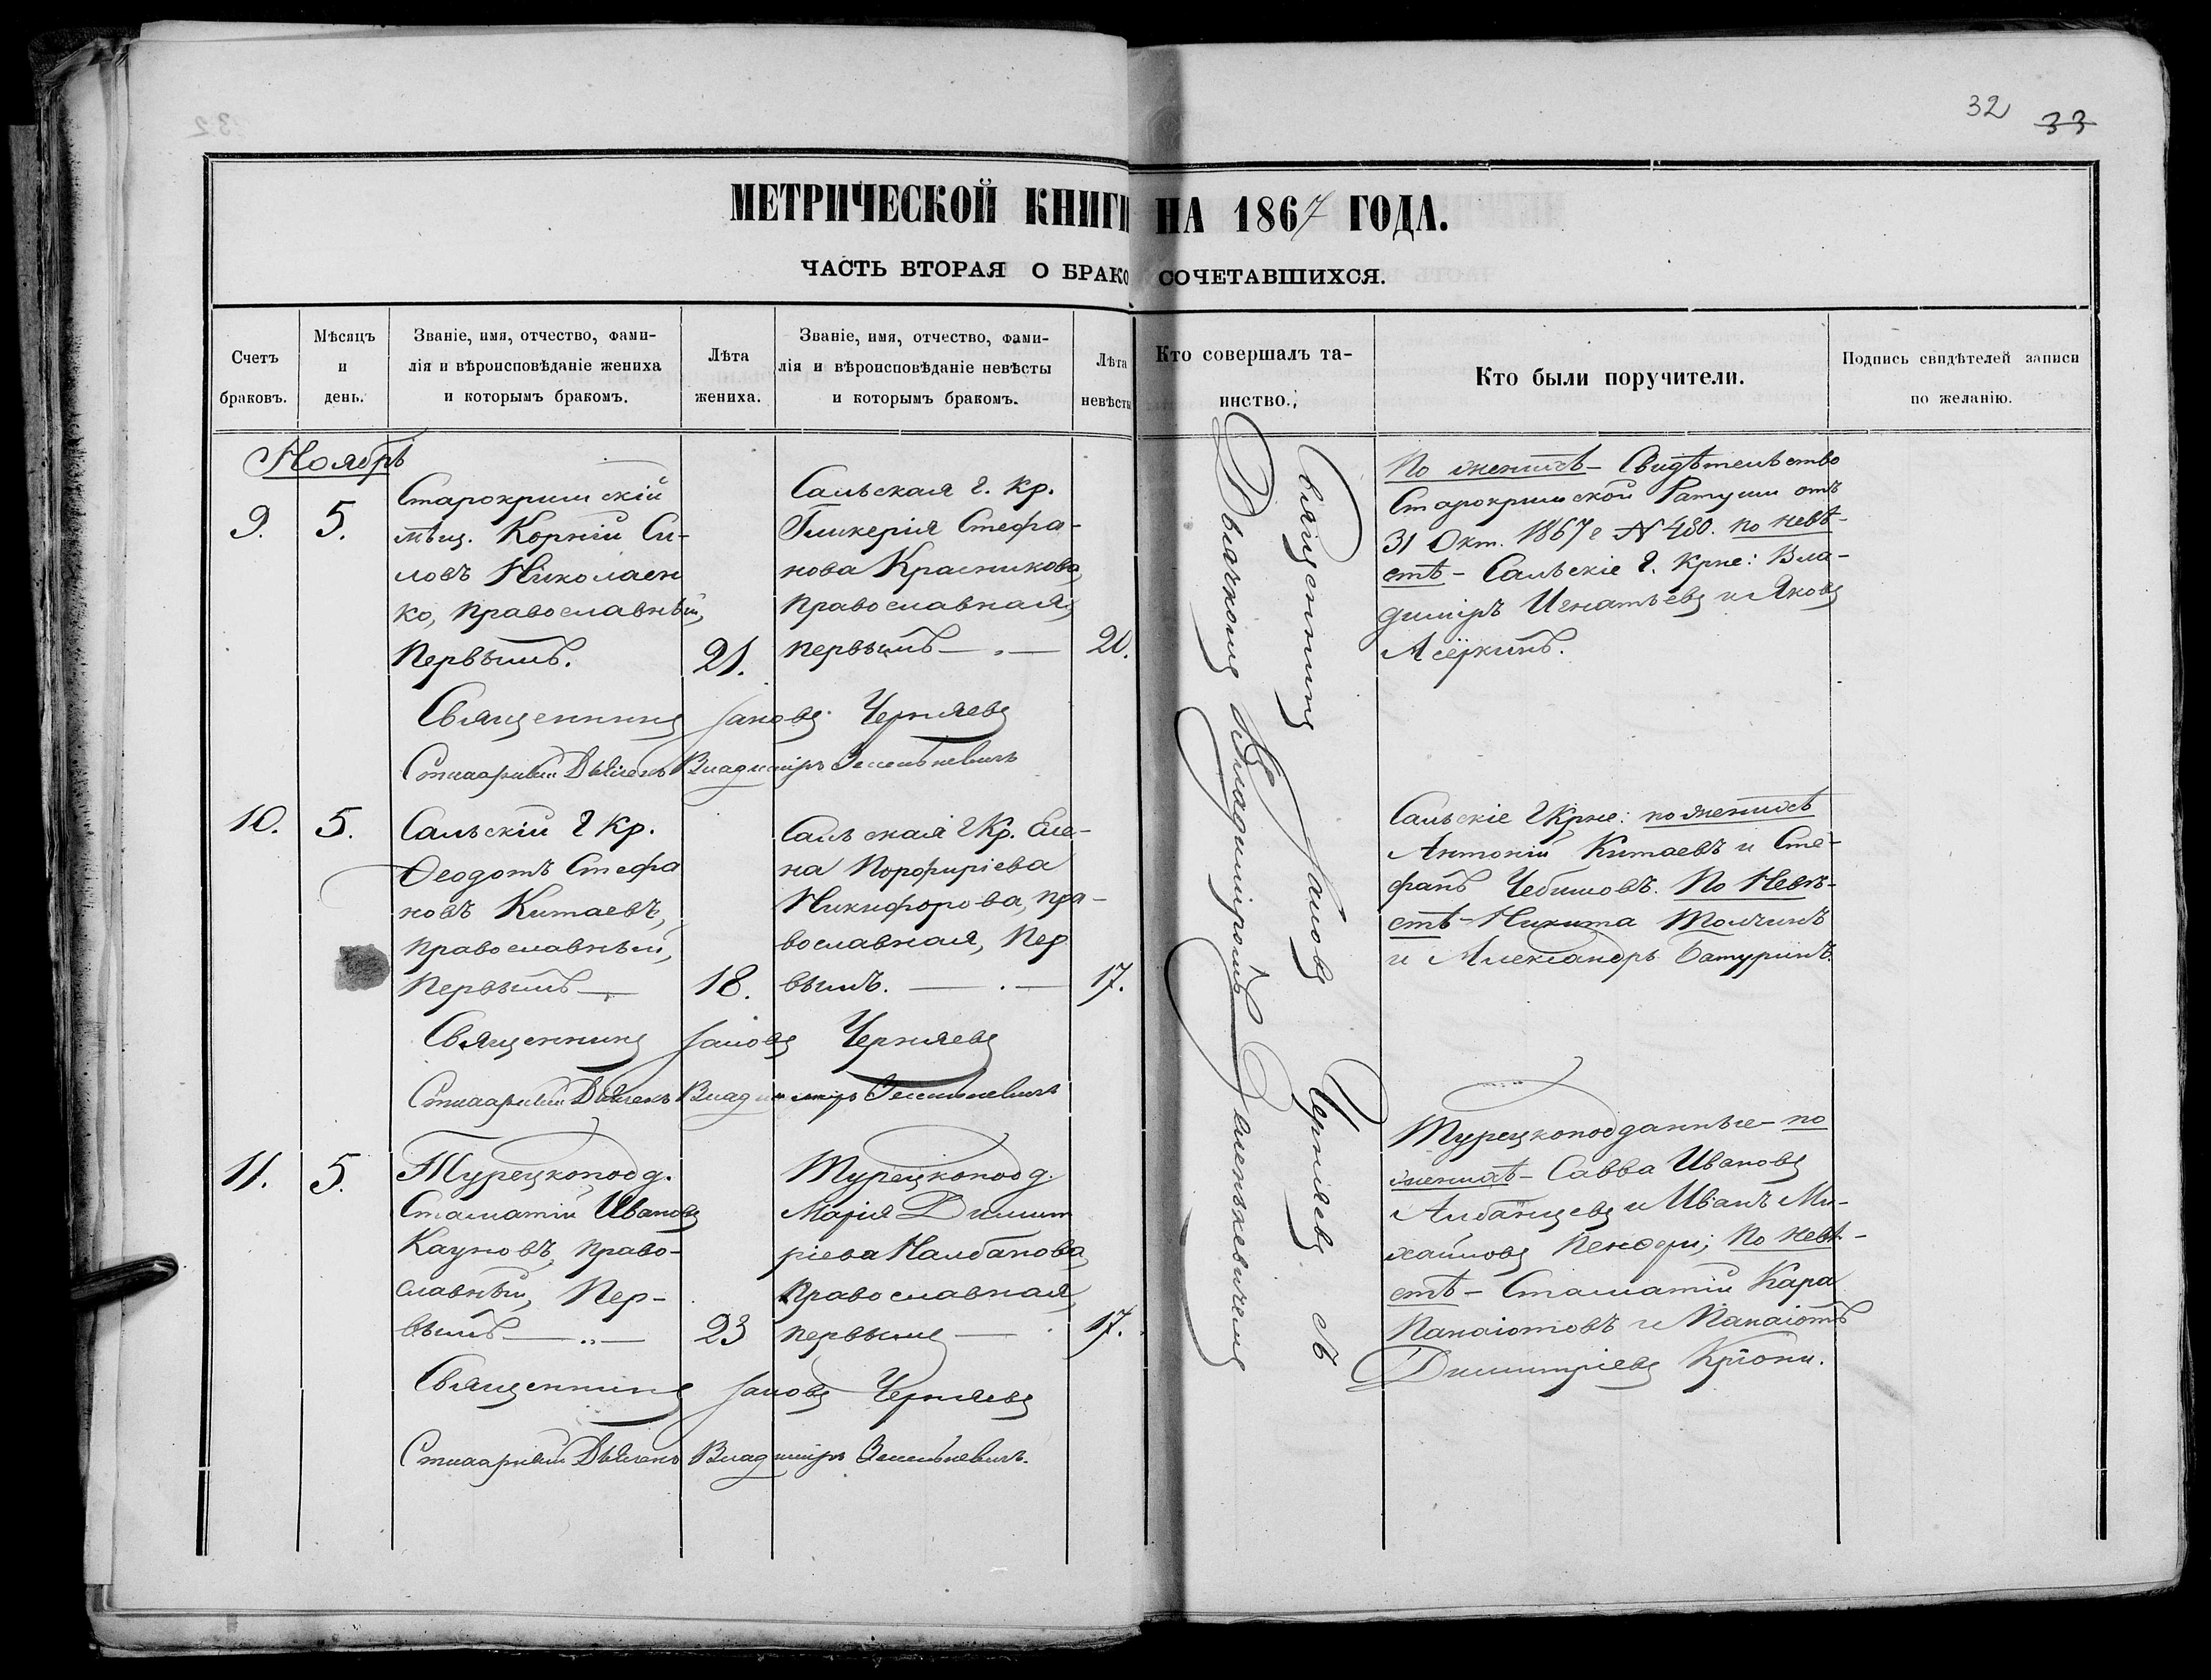 32 33
МЕТРИЧЕСКОЙ КНИГИ НА 1867 ГОДА.
ЧАСТЬ ВТОРАЯ О БРАКОСОЧЕТАВШИХСЯ.
Счетъ
браковъ.
Мѣсяцъ
и
день.
Званіе, имя, отчество, фами-
лія и вѣроисповѣданіе жениха
и которымъ бракомъ.
Лѣта
жениха.
Званіе, имя, отчество, фами-
лія и вѣроисповѣданіе невѣсты
и которымъ бракомъ.
Лѣта
невѣсты
Кто совершалъ та-
инство.
Кто были поручители.
Подпись свидѣтелей записи
по желанію.
Ноябрь
9.
5.
Старокрымскій
мѣщ. Корній Си-
ловъ Николаен
ко, православный,
Первымъ.
21.
Сальская г. кр.
Гликерія Стефа-
нова Красникова,
православная,
первымъ
20.
По женихѣ - Свидѣтельство
Старокрымской Ратуши отъ
31 Окт. 1867 г № 480. по невѣ-
стѣ - Сальскіе г. крне: Вла-
димiръ Игнатьевъ и Яковъ
Священникъ Іаковъ Черняевъ
Стихарный Дьячекъ Владимiръ Зеленкевичъ
10.
5.
Сальскій г кр.
Ѳеодотъ Стефа
новъ Китаевъ,
православный,
Первымъ
18.
Сальская г Кр. Еле-
на Порфиріева
Никифорова, пра-
вославная, Пер
вымъ.
17.
Сальскіе г крне: по женихѣ
Антоній Китаевъ и Сте-
фанъ По Невѣ-
стѣ - Никита Толчинъ
и Александръ Батуринъ.
Священникъ Іаковъ Черняевъ
Стихарный Дьячекъ Владимiръ Зеленкевичъ
11.
5.
Турецкопод.
Стаматій Ивановъ
Кауновъ, право-
славный, Пер-
вымъ
23
Турецкопод.
Марія Димит
ріева Налбанова,
Православная,
первымъ
17.
Турецкоподданные - по
женихѣ - Савва Ивановъ
Албанцевъ и Иванъ Ми-
хайловъ по невѣ-
стѣ - Стаматій Кара
Панаіотовъ и Панаіотъ
Димитріевъ Кріони.
Священникъ Іаковъ Черняевъ
Стихарный Дьячекъ Владимiръ Зеленкевичъ.
Священникъ Іаковъ Черняевъ съ
Дьячкомъ Владимiромъ Зеленкевичемъ